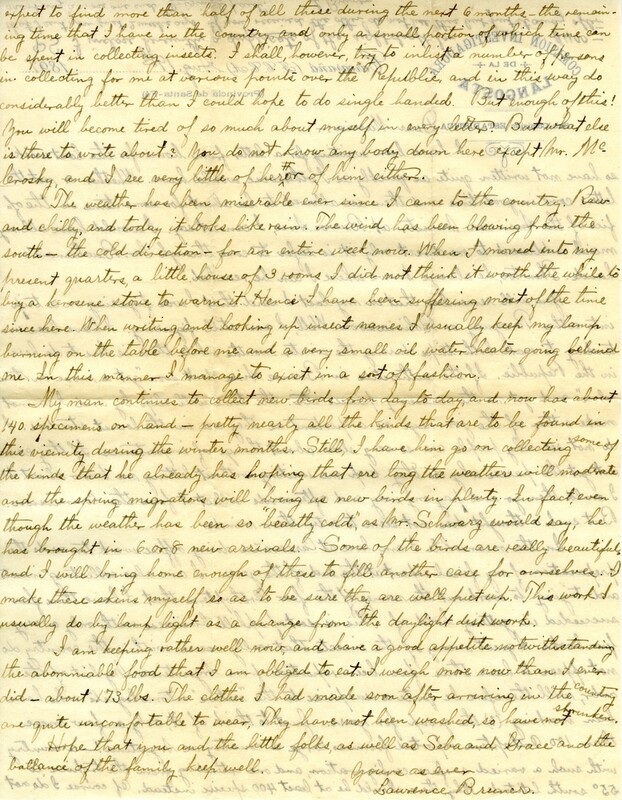 expect to find more than half of all these during the next 6 months - the remain-
ing time that I have in the country and only a small portion of which time can
be spent in collecting insects. I shall however, try to inlist a number of persons
in collecting for me at various points over the Republic, and in this way do
considerably better than I could hope to do single handed. But enough of this!
You will become tired of so much about myself in every letter. But what else
is there to write about? You do not know any body down here except Mr. Mc
Crosky, and I see very little of her or of him either.
The weather has ban miserable ever since I came to the country. Raw
and chilly, and today it looks like rain. The wind has been blowing from the
south - the cold direction - for an entire week now. When I moved into my
present quarters, a little house of 3 rooms I did not think it worth the while to
buy a kerosene stove to warm it. Hence I have been suffering most of the time
since here. When writing and looking up insect names I usually keep my lamp
burning on the table before me and a very small oil water heater going behind
me. In this manner I manage to exist in a sort of fashion.
My man continues to collect new birds from day to day, and now has about
140 specimens on hand - pretty nearly all the kinds that are to be found in
this vicinity during the winter months. Still, I have him go on collecting some of
the kinds that he already has hoping that ere long the weather will moderate
and the spring migrations will bring us new birds in plenty. In fact even
though the weather has been so "beastly cold", as Mr. Schwarz would say, he
has brought in 6 or 8 new arrivals. Some of the birds are really beautiful,
and I will bring home enough of these to fill another case for ourselves. I
make these skins myself so as to be sure they are well put up. This work I
usually do by lamp light as a change from the daylight desk work.
I am keeping rather well now, and have a good appetite notwithstanding
the abomniable food that I am obliged to eat. I weigh more now than I ever
did - about 173 lbs. The clothes I had made soon after arriving in the country
are quite uncomfortable to wear, They have not been washed, so have not shrunken.
Hope that you and the little folks, as well as Seba and Grace and the
ballance of the family keep well.
Yours as ever
Lawrence Bruner.